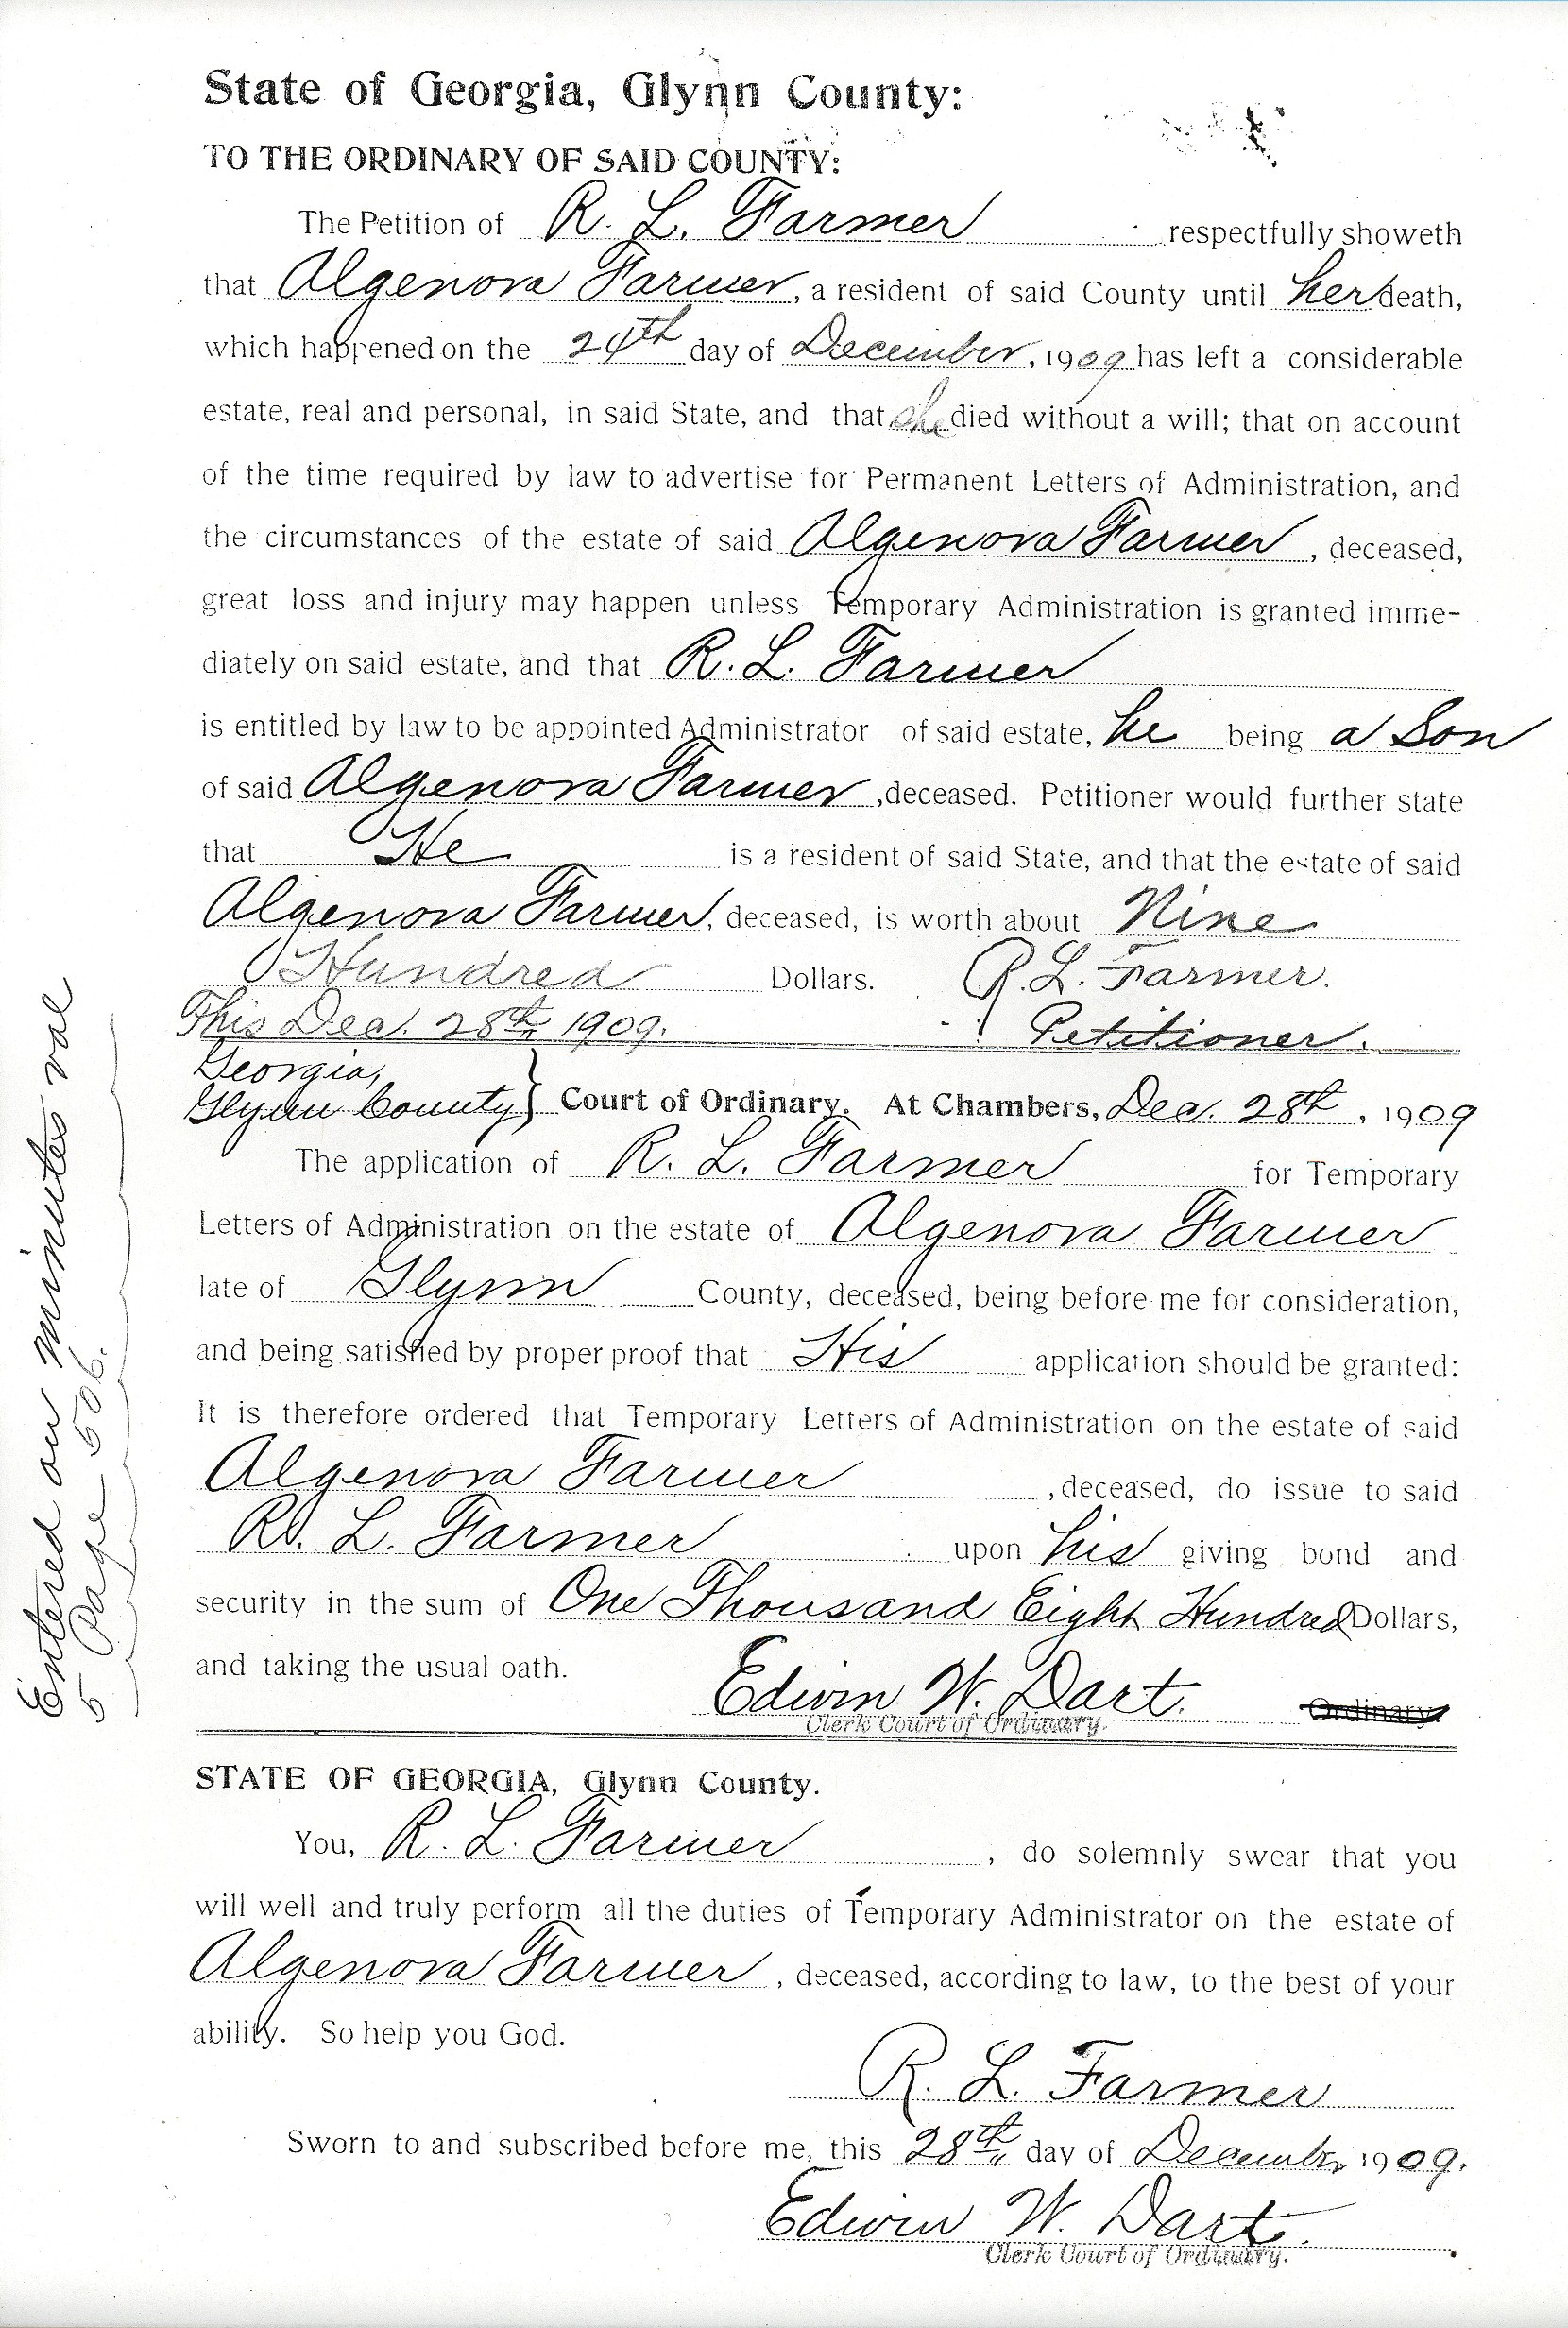 State of Georgia, Glynn County:
TO THE ORDINARY OF SAID COUNTY:
The Petition of R. L. Farmer respectfully showeth
that Algenova Farmer, a resident of said County until her death,
which happened on the 24th day of December, 1909 has left a considerable
estate, real and personal, in said State, and that she died without a will; that on account
of the time required by law to advertise for Permanent Letters of Administration, and
the circumstances of the estate of said Algenova Farmer, deceased,
great loss and injury may happen unless Temporary Administration is granted imme-
diately on said estate, and that R. L. Farmer
is entitled by law to be appointed Administrator of said estate, he being a Son
of said Algenova Farmer, deceased. Petitioner would further state
that He is a resident of said State, and that the estate of said
Algenova Farmer, deceased, is worth about Nine
Hundred Dollars. R. L. Farmer.
This Dec. 28th, 1909. Petitioner.
Georgia,
Glynn County } Court of Ordinary. At Chambers, Dec. 28th, 1909
The application of R. L. Farmer for Temporary
Letters of Administration on the estate of Algenova Farmer
late of Glynn County, deceased, being before me for consideration,
and being satisfied by proper proof that His application should be granted:
It is therefore ordered that Temporary Letters of Administration on the estate of said
Algenova Farmer, deceased, do issue to said
R. L. Farmer upon his giving bond and
security in the sum of One Thousand Eight Hundred Dollars,
and taking the usual oath. Edwin W. Dart. Ordinary.
Clerk Court of Ordinary.
STATE OF GEORGIA, Glynn County.
You, R. L. Farmer, do solemnly swear that you
will well and truly perform all the duties of Temporary Administrator on the estate of
Algenova Farmer, deceased, according to law, to the best of your
ability. So help you God.
R. L. Farmer
Sworn to and subscribed before me, this 28th day of December 1909.
Edwin W. Dart.
Clerk Court of Ordinary.
Entered on Minutes vol
5 Page 506.